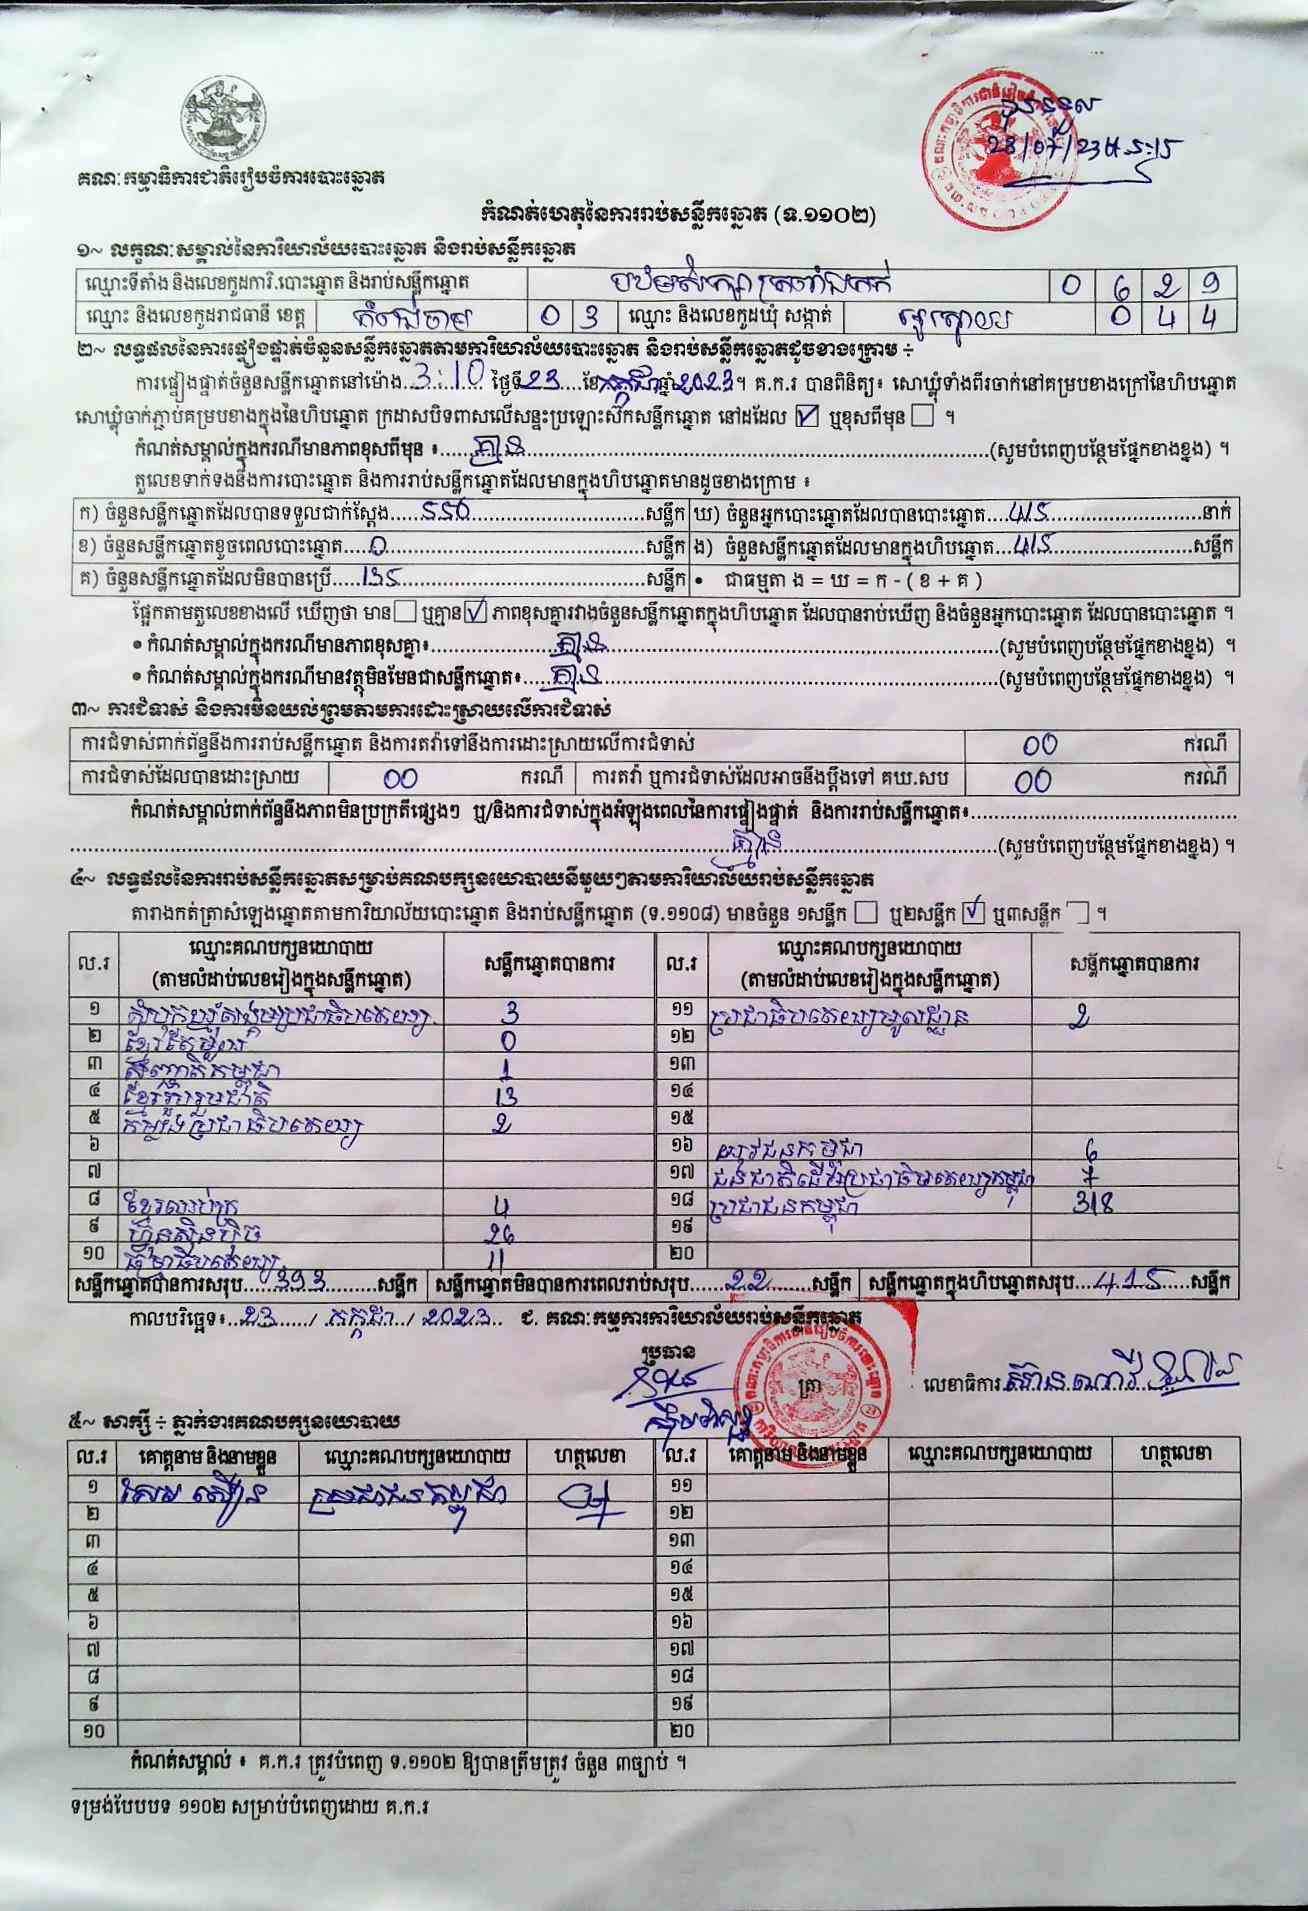 គណៈកម្មាធិការជាតិរៀបចំការបោះឆ្នោត
28/07/23
កំណត់ហេតុនៃការរាប់សន្លឹកឆ្នោត (ទ.១១០២)
១~ លក្ខណៈសម្គាល់នៃការិយាល័យបោះឆ្នោត និងរាប់សន្លឹកឆ្នោត
ឈ្មោះទីតាំង និងលេខកូដការិ.បោះឆ្នោត និងរាប់សន្លឹកឆ្នោត 0 6 2 9
ឈ្មោះ និងលេខកូដរាជធានី ខេត្ត កំពង់ចាម 0 3 ឈ្មោះ និងលេខកូដឃុំ សង្កាត់ 0 4 4
២~ លទ្ធផលនៃការផ្ទៀងផ្ទាត់ចំនួនសន្លឹកឆ្នោតតាមការិយាល័យបោះឆ្នោត និងរាប់សន្លឹកឆ្នោតដូចខាងក្រោម ៖
ការផ្ទៀងផ្ទាត់ចំនួនសន្លឹកឆ្នោតនៅម៉ោង 3:10 ថ្ងៃទី 23 ខែ កក្កដា ឆ្នាំ 2023។ គ.ក.រ បានពិនិត្យ៖ សោឃ្លុំទាំងពីរចាក់នៅគម្របខាងក្រៅនៃហិបឆ្នោត
សោឃ្លុំចាក់ភ្ជាប់គម្របខាងក្នុងនៃហិបឆ្នោត ក្រដាសបិទពាសលើសន្ទះប្រឡោះស៊កសន្លឹកឆ្នោត នៅដដែល ☑ ឬខុសពីមុន ☐ ។
កំណត់សម្គាល់ក្នុងករណីមានភាពខុសពីមុន ៖ គ្មាន (សូមបំពេញបន្ថែមផ្នែកខាងខ្នង) ។
តួលេខទាក់ទងនឹងការបោះឆ្នោត និងការរាប់សន្លឹកឆ្នោតដែលមានក្នុងហិបឆ្នោតមានដូចខាងក្រោម ៖
ក) ចំនួនសន្លឹកឆ្នោតដែលបានទទួលជាក់ស្តែង 550 សន្លឹក ឃ) ចំនួនអ្នកបោះឆ្នោតដែលបានបោះឆ្នោត 415 នាក់
ខ) ចំនួនសន្លឹកឆ្នោតខូចពេលបោះឆ្នោត 0 សន្លឹក ង) ចំនួនសន្លឹកឆ្នោតដែលមានក្នុងហិបឆ្នោត 415 សន្លឹក
គ) ចំនួនសន្លឹកឆ្នោតដែលមិនបានប្រើ 135 សន្លឹក • ជាធម្មតា ង = ឃ = ក - ( ខ + គ )
ផ្អែកតាមតួលេខខាងលើ ឃើញថា មាន ☐ ឬគ្មាន ☑ ភាពខុសគ្នារវាងចំនួនសន្លឹកឆ្នោតក្នុងហិបឆ្នោត ដែលបានរាប់ឃើញ និងចំនួនអ្នកបោះឆ្នោត ដែលបានបោះឆ្នោត ។
• កំណត់សម្គាល់ក្នុងករណីមានភាពខុសគ្នា៖ គ្មាន (សូមបំពេញបន្ថែមផ្នែកខាងខ្នង) ។
• កំណត់សម្គាល់ក្នុងករណីមានវត្ថុមិនមែនជាសន្លឹកឆ្នោត៖ គ្មាន (សូមបំពេញបន្ថែមផ្នែកខាងខ្នង) ។
៣~ ការជំទាស់ និងការមិនយល់ព្រមតាមការដោះស្រាយលើការជំទាស់
ការជំទាស់ពាក់ព័ន្ធនឹងការរាប់សន្លឹកឆ្នោត និងការតវ៉ាទៅនឹងការដោះស្រាយលើការជំទាស់ 00 ករណី
ការជំទាស់ដែលបានដោះស្រាយ 00 ករណី ការតវ៉ា ឬការជំទាស់ដែលអាចនឹងប្តឹងទៅ គឃ.សប 00 ករណី
កំណត់សម្គាល់ពាក់ព័ន្ធនឹងភាពមិនប្រក្រតីផ្សេងៗ ឬ/និងការជំទាស់ក្នុងអំឡុងពេលនៃការផ្ទៀងផ្ទាត់ និងការរាប់សន្លឹកឆ្នោត៖
គ្មាន (សូមបំពេញបន្ថែមផ្នែកខាងខ្នង) ។
៤~ លទ្ធផលនៃការរាប់សន្លឹកឆ្នោតសម្រាប់គណបក្សនយោបាយនីមួយៗតាមការិយាល័យរាប់សន្លឹកឆ្នោត
តារាងកត់ត្រាសំឡេងឆ្នោតតាមការិយាល័យបោះឆ្នោត និងរាប់សន្លឹកឆ្នោត (ទ.១១០៨) មានចំនួន ១សន្លឹក ☐ ឬ២សន្លឹក ☑ ឬ៣សន្លឹក ☐ ។
ល.រ ឈ្មោះគណបក្សនយោបាយ (តាមលំដាប់លេខរៀងក្នុងសន្លឹកឆ្នោត) សន្លឹកឆ្នោតបានការ ល.រ ឈ្មោះគណបក្សនយោបាយ (តាមលំដាប់លេខរៀងក្នុងសន្លឹកឆ្នោត) សន្លឹកឆ្នោតបានការ
១ សំបុកឃ្មុំសង្គមប្រជាធិបតេយ្យ 3 ១១ ប្រជាធិបតេយ្យមូលដ្ឋាន 2
២ ខ្មែរតែមួយ 0 ១២
៣ ជំនឿជាតិកម្ពុជា 1 ១៣
៤ ខ្មែររួបរួមជាតិ 13 ១៤
៥ កម្លាំងប្រជាធិបតេយ្យ 2 ១៥
៦ ១៦ យុវជនកម្ពុជា 6
៧ ១៧ ជនជាតិដើមប្រជាធិបតេយ្យកម្ពុជា 7
៨ ខ្មែរឈប់ក្រ 4 ១៨ ប្រជាជនកម្ពុជា 318
៩ ហ៊្វុនស៊ិនប៉ិច 26 ១៩
១០ ធម្មាធិបតេយ្យ 11 ២០
សន្លឹកឆ្នោតបានការសរុប 393 សន្លឹក សន្លឹកឆ្នោតមិនបានការពេលរាប់សរុប 22 សន្លឹក សន្លឹកឆ្នោតក្នុងហិបឆ្នោតសរុប 415 សន្លឹក
កាលបរិច្ឆេទ៖ 23 / កក្កដា / 2023 ជ. គណៈកម្មការការិយាល័យរាប់សន្លឹកឆ្នោត
ប្រធាន
ត្រា
លេខាធិការ
៥~ សាក្សី ÷ ភ្នាក់ងារគណបក្សនយោបាយ
ល.រ គោត្តនាម និងនាមខ្លួន ឈ្មោះគណបក្សនយោបាយ ហត្ថលេខា ល.រ គោត្តនាម និងនាមខ្លួន ឈ្មោះគណបក្សនយោបាយ ហត្ថលេខា
១ ប្រជាជនកម្ពុជា ១១
២ ១២
៣ ១៣
៤ ១៤
៥ ១៥
៦ ១៦
៧ ១៧
៨ ១៨
៩ ១៩
១០ ២០
កំណត់សម្គាល់ ៖ គ.ក.រ ត្រូវបំពេញ ទ.១១០២ ឱ្យបានត្រឹមត្រូវ ចំនួន ៣ច្បាប់ ។
ទម្រង់បែបបទ ១១០២ សម្រាប់បំពេញដោយ គ.ក.រ